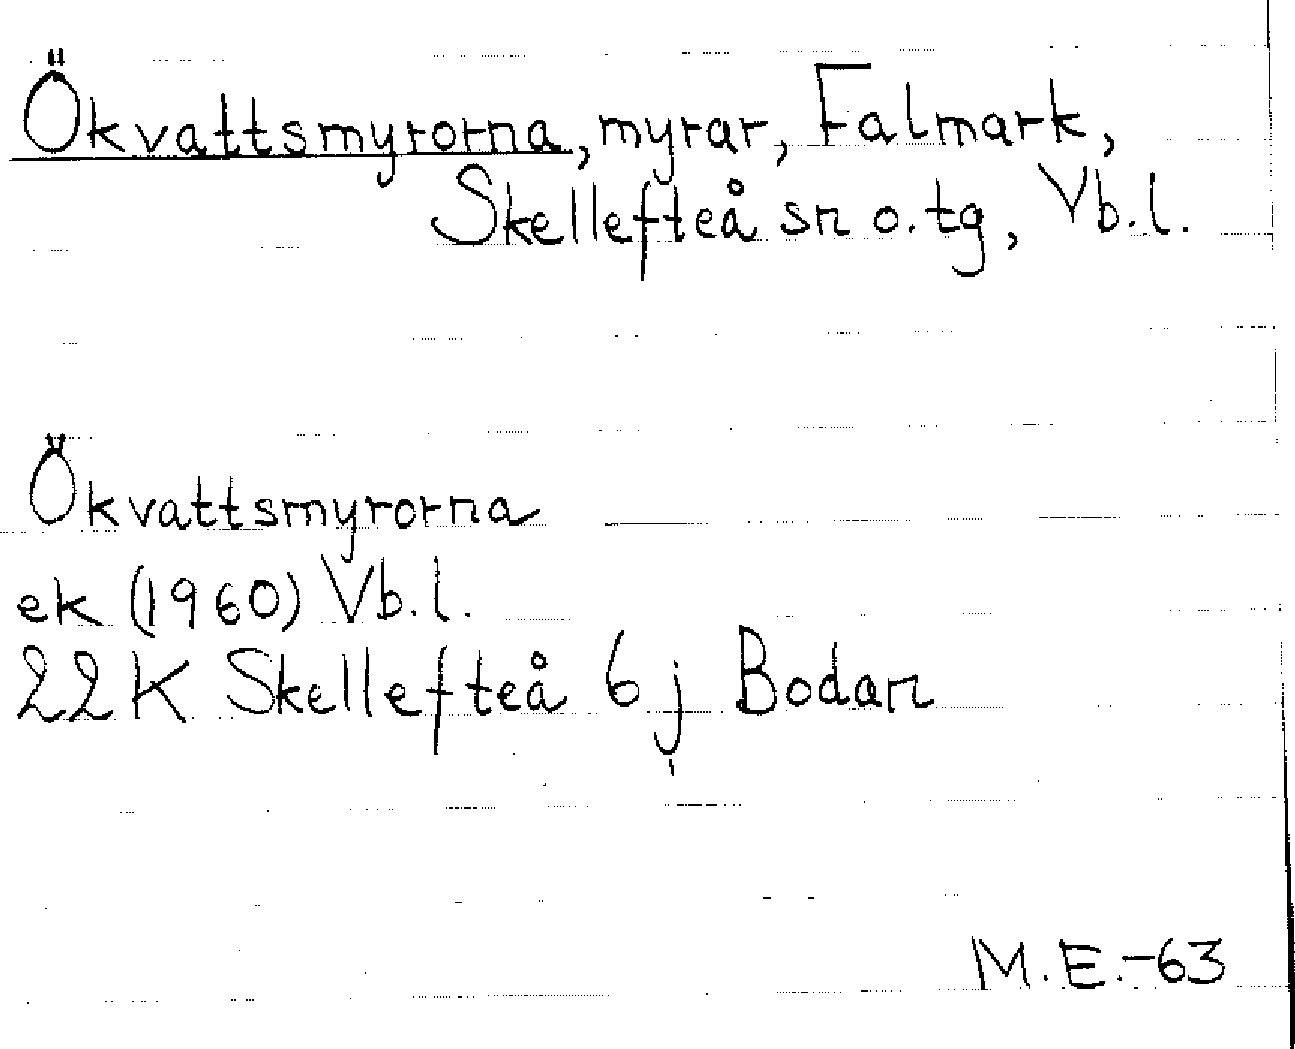 Ökvattsmyrorna, myrar, Falmark,
Skellefteå sn o. tg, Vb.l.
Ökvattsmyrorna
ek (1960) Vb.l.
22K Skellefteå 6j Bodan
M.E.-63